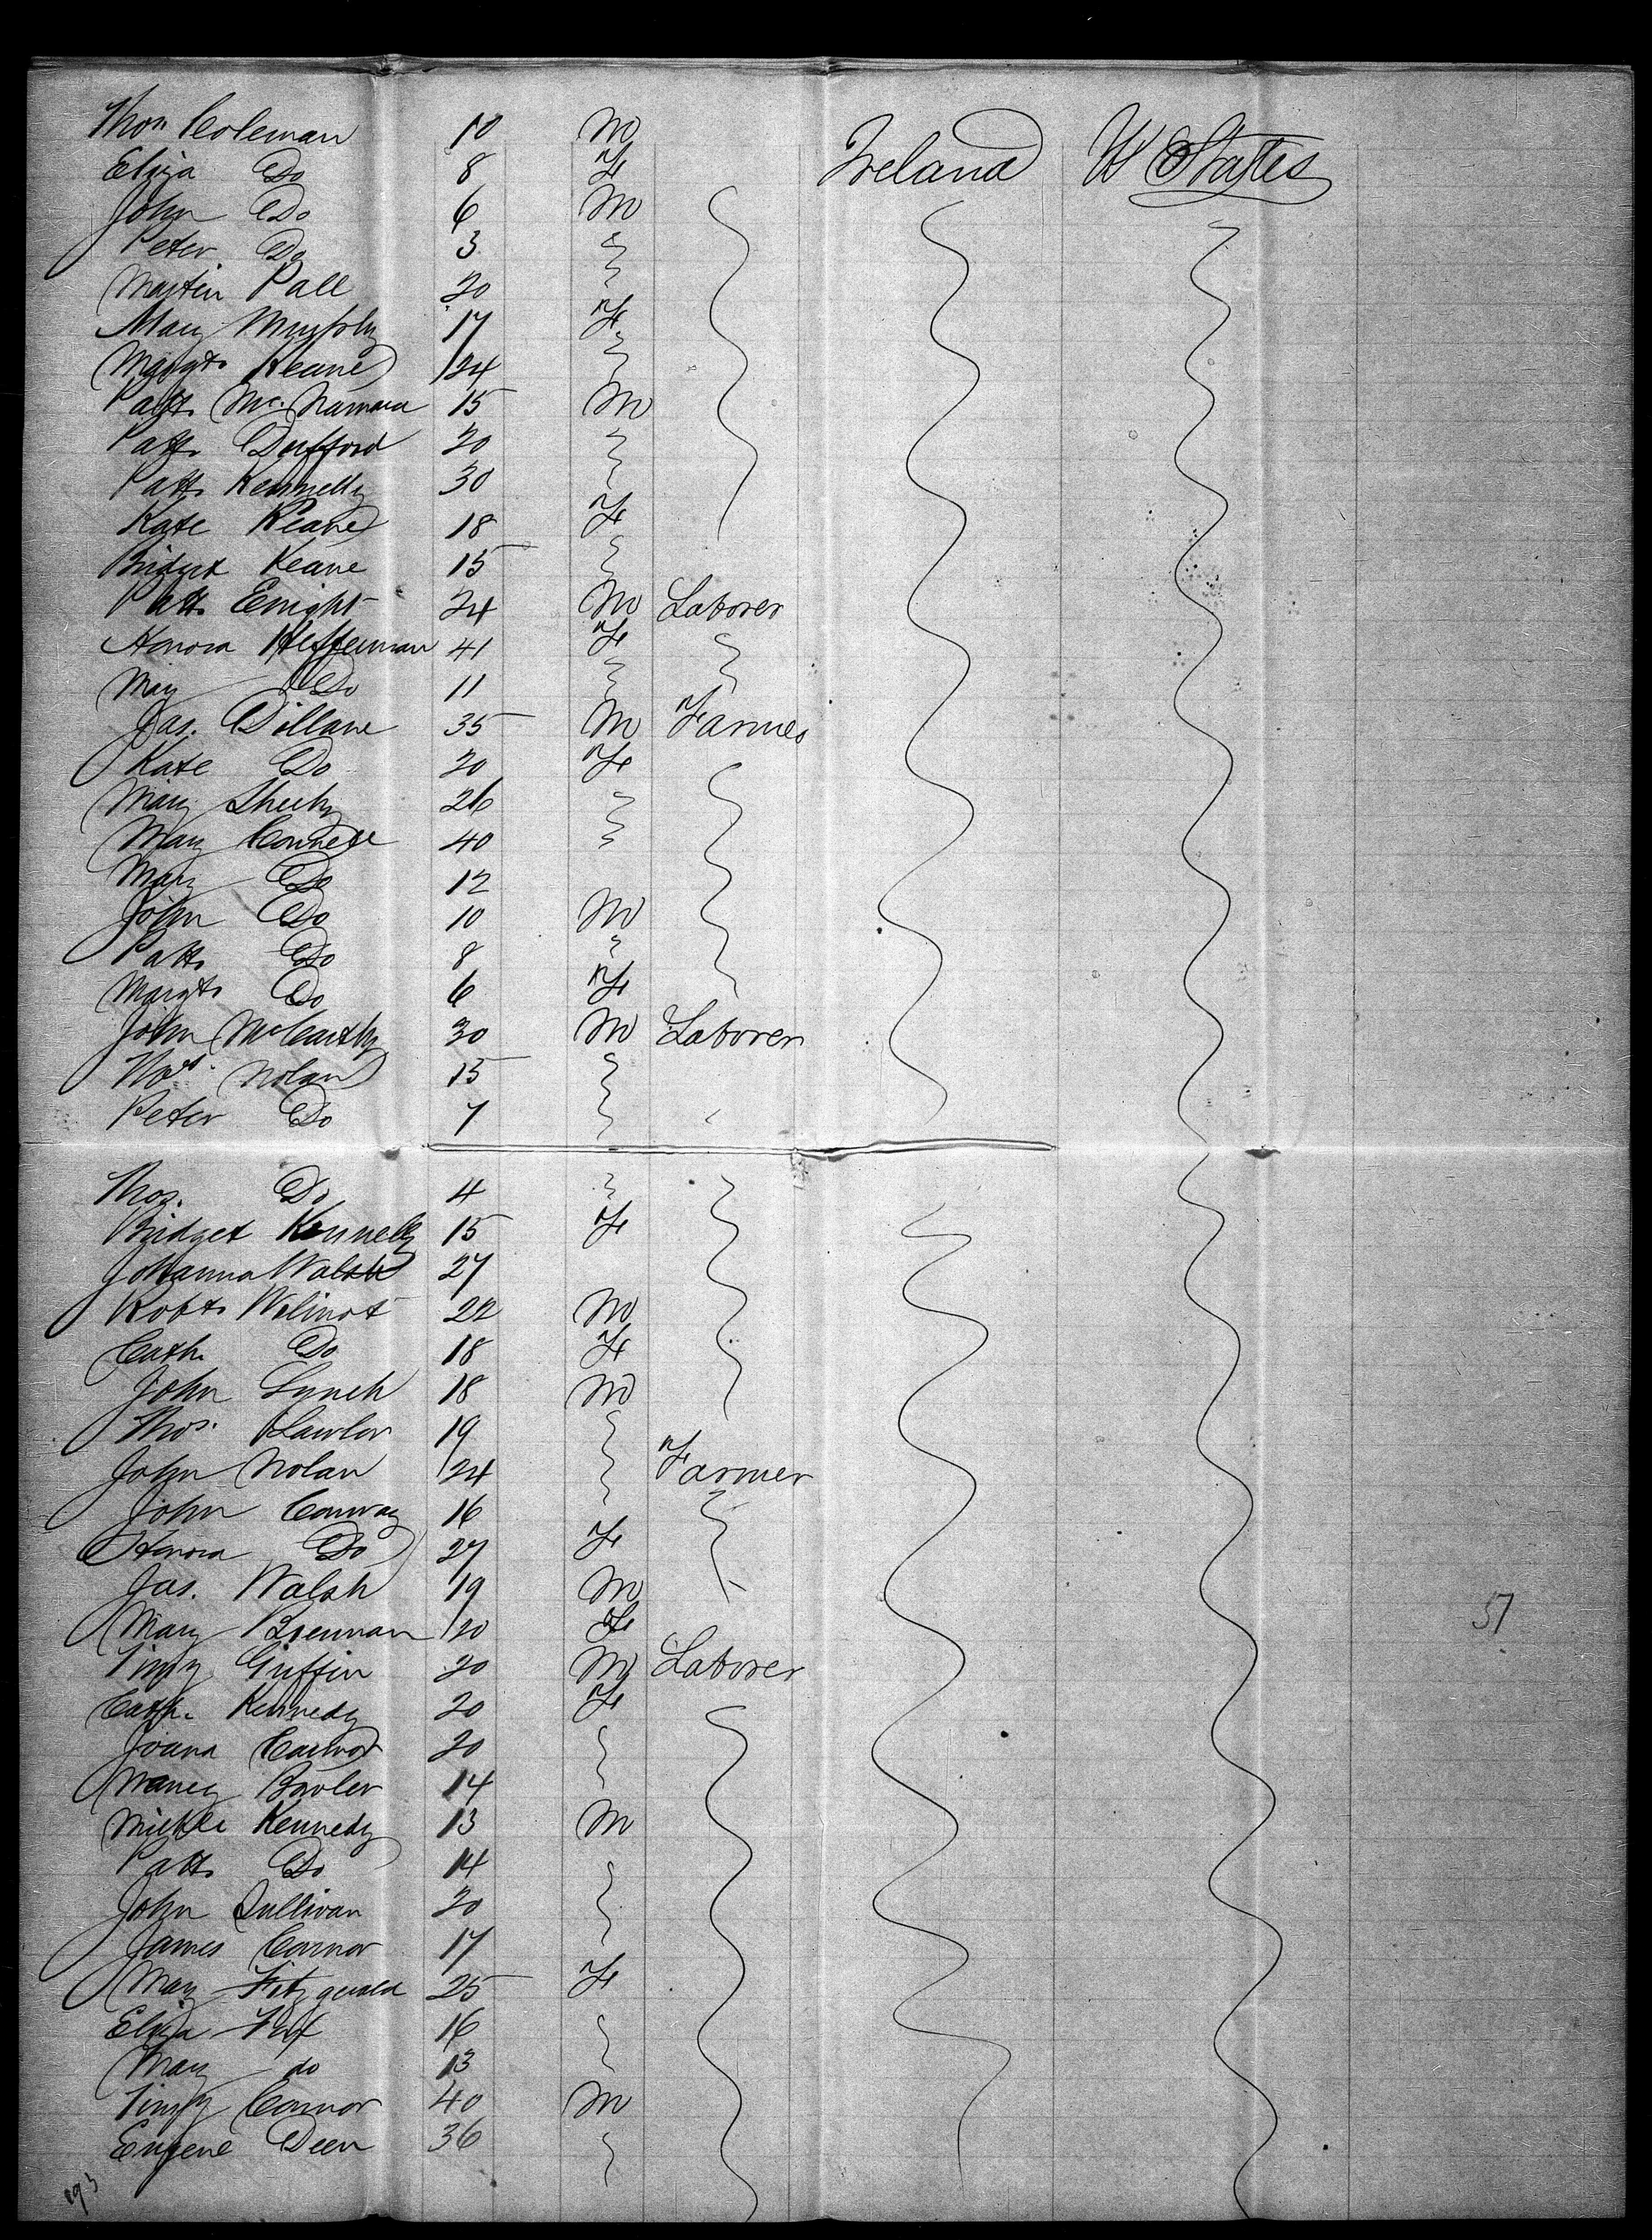 Thos Coleman 10 M Ireland U States
Eliza Do 8 F
John Do 6 M
Peter Do 3
Martin Pall 20
Mary Murphy 17 F
Margt Keane 24
Patk McNamara 15 M
Patk Dufford 20
Patk Kennelly 30
Kate Keane 18 F
Bridget Keane 15
Patk Enight 24 M Laborer
Honora Heffernan 41 F
Mary Do 11
Jas. Dillane 35 M Farmer
Kate Do 20 F
Mary Sheehy 26
Mary Connell 40
Mary Do 12
John Do 10 M
Patk Do 8 "
Margt Do 6 F
John McCarthy 30 M Laborer
Nolan 15
Peter Do 7
Thos. Do 4
Bridget Kennelly 15 F
Johanna Walsh 27
Robt Wilmot 22 M
Cath. Do 18 F
John Lynch 18 M
Thos. Lawlor 19
John Nolan 24 Farmer
John Conway 16
Honora Do 27 F
Jas. Walsh 19 M
Mary Brennan 20 F 57
Timy Griffin 20 M Laborer
Cath. Kennedy 20 F
Joana 20
Nancy Bowler 14
Michl Kennedy 13 M
Patk Do 14
John Sullivan 20
James Connor 17
Mary Fitzgerald 25 F
Eliza 16
Mary do 13
Timy Connor 40 M
Eugene Deen 36
193